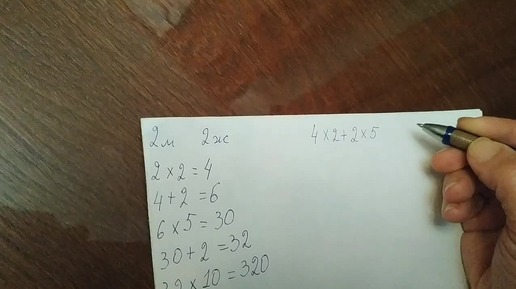 2м 2ж 4×2+2×5
2×2=4
4+2=6
6×5=30
30+2=32
32×10=320